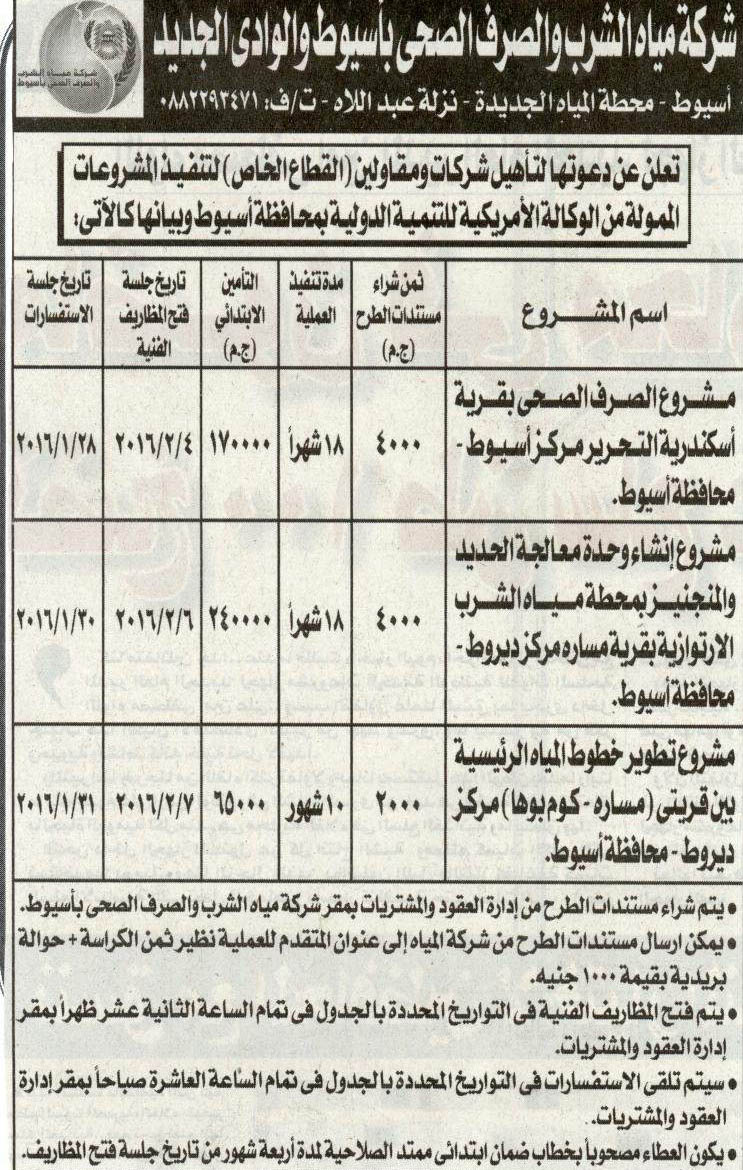 شركة مياه الشرب والصرف الصحى بأسيوط والوادى الجديد
شركة مياه الشرب
والصرف الصحي بأسيوط
أسيوط - محطة المياه الجديدة - نزلة عبد اللاه - ت/ف: ٠٨٨٢٢٩٣٤٧١
تعلن عن دعوتها لتأهيل شركات ومقاولين (القطاع الخاص) لتنفيذ المشروعات
الممولة من الوكالة الأمريكية للتنمية الدولية بمحافظة أسيوط وبيانها كالآتى:
اسم المشروع
ثمن شراء
مستندات الطرح
(ج.م)
مدة تنفيذ
العملية
التأمين
الابتدائي
(ج.م)
تاريخ جلسة
فتح المظاريف
الفنية
تاريخ جلسة
الاستفسارات
مشروع الصرف الصحى بقرية
أسكندرية التحرير مركز أسيوط -
محافظة أسيوط.
٤٠٠٠
١٨ شهراً
١٧٠٠٠٠
٢٠١٦/٢/٤
٢٠١٦/١/٢٨
مشروع إنشاء وحدة معالجة الحديد
والمنجنيز بمحطة مياه الشرب
الارتوازية بقرية مساره مركز ديروط -
محافظة أسيوط.
٤٠٠٠
١٨ شهراً
٢٤٠٠٠٠
٢٠١٦/٢/٦
٢٠١٦/١/٣٠
مشروع تطوير خطوط المياه الرئيسية
بين قريتى (مساره - كوم بوها) مركز
ديروط - محافظة أسيوط.
٢٠٠٠
١٠ شهور
٦٥٠٠٠
٢٠١٦/٢/٧
٢٠١٦/١/٣١
• يتم شراء مستندات الطرح من إدارة العقود والمشتريات بمقر شركة مياه الشرب والصرف الصحى بأسيوط.
• يمكن ارسال مستندات الطرح من شركة المياه إلى عنوان المتقدم للعملية نظير ثمن الكراسة + حوالة
بريدية بقيمة ١٠٠٠ جنيه.
• يتم فتح المظاريف الفنية فى التواريخ المحددة بالجدول فى تمام الساعة الثانية عشر ظهراً بمقر
إدارة العقود والمشتريات.
• سيتم تلقى الاستفسارات فى التواريخ المحددة بالجدول فى تمام الساعة العاشرة صباحاً بمقر إدارة
العقود والمشتريات.
• يكون العطاء مصحوباً بخطاب ضمان ابتدائى ممتد الصلاحية لمدة أربعة شهور من تاريخ جلسة فتح المظاريف.